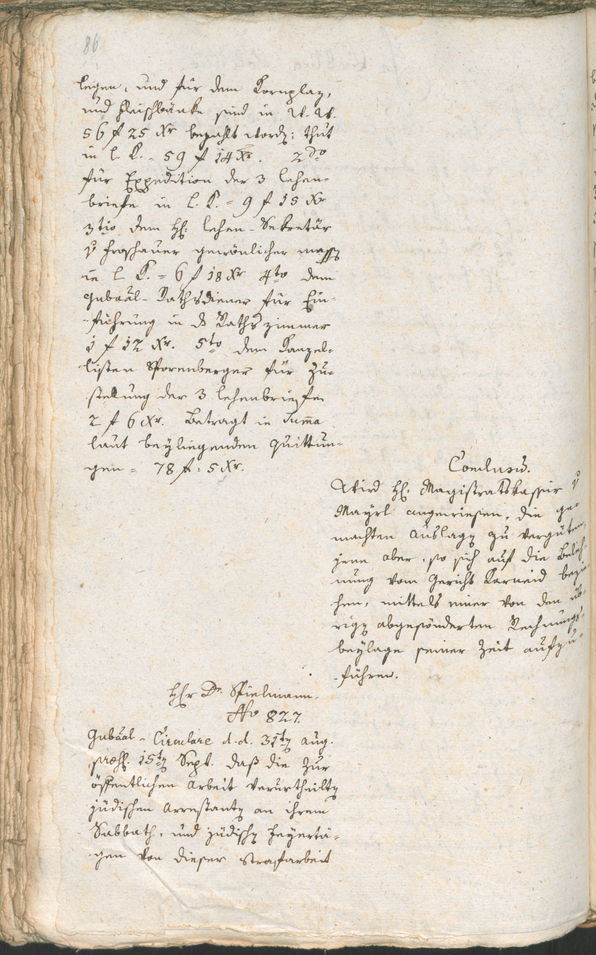 86
legen, und für dem Kornplaz,
und Fleischbänke sind in W. W.
56 f 25 Xr bezahlt word: thut
in l. K. = 59 f 14 Xr. 2do
für Expedition der 3 Lehen-
briefe in L. K. = 9 f 15 Xr
3tio dem H: Lehen-Sekretär
v Froschauer gewönlicher massen
in L K. = 6 f 18 Xr 4to dem
Gubaal-Rathsdiener für Ein-
führung in ds Rathszimmer
1 f 12 Xr. 5to dem Kanzel-
listen Sporenberger für Zu-
stellung der 3 Lehenbriefen
2 f 6 Xr. Betragt in Suma
laut beyliegenden Quittun-
gen = 78 f: 5 Xr.
Conclusum.
Wird H: Magistratskassier v
Mayrl angewiesen, die ge-
machten Auslagen zu vergüten,
jene aber, so sich auf die Beleh-
nung vom Gericht Karneid bezie-
hen, mittels einer von den üb-
rigen abgesönderten Rechnungs-
beylage seiner Zeit aufzu-
führen.
Hhr Dr. Spielmann.
No 827.
Gubaal-Circulare d. d. 31ten Aug.
praes. 15ten Sept. daß die zur
öffentlichen Arbeit verurtheilten
jüdischen Arrestanten an ihrem
Sabbath, und jüdischen Feyertä-
gen von dieser Strafarbeit